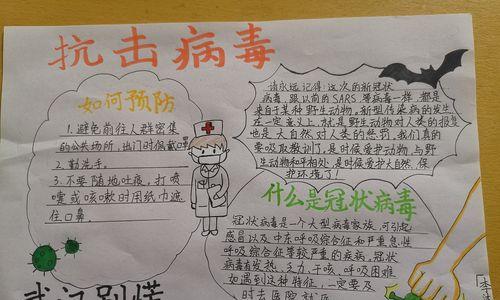 抗击病毒
如何预防
1.避免前往人群密集
的公共场所，出门时佩戴口罩
2.勤洗手。
3.不要随地吐痰，打喷
嚏或咳嗽时用纸巾遮
住口鼻。
请永远记得：这次的新冠状
病毒，跟以前的SARS等病毒一样，都是
来自于某种野生动物。新型传染病的发生
在一定意义上，就是野生动物对人类的报复
也是大自然对人类的惩罚，我们真的
要吸取教训了，是时候爱护动物，与野
生动物和平相处，是时候爱护大自然，保
护环境了！
什么是冠状病毒
冠状病毒是一个大型病毒家族，可引起
感冒以及中东呼吸综合征和严重急性
呼吸综合征等较严重的疾病。冠状
病毒有发热、乏力、干咳、呼吸困难
如遇到这种特征，一定要及
时去医院就医
武汉别慌
李